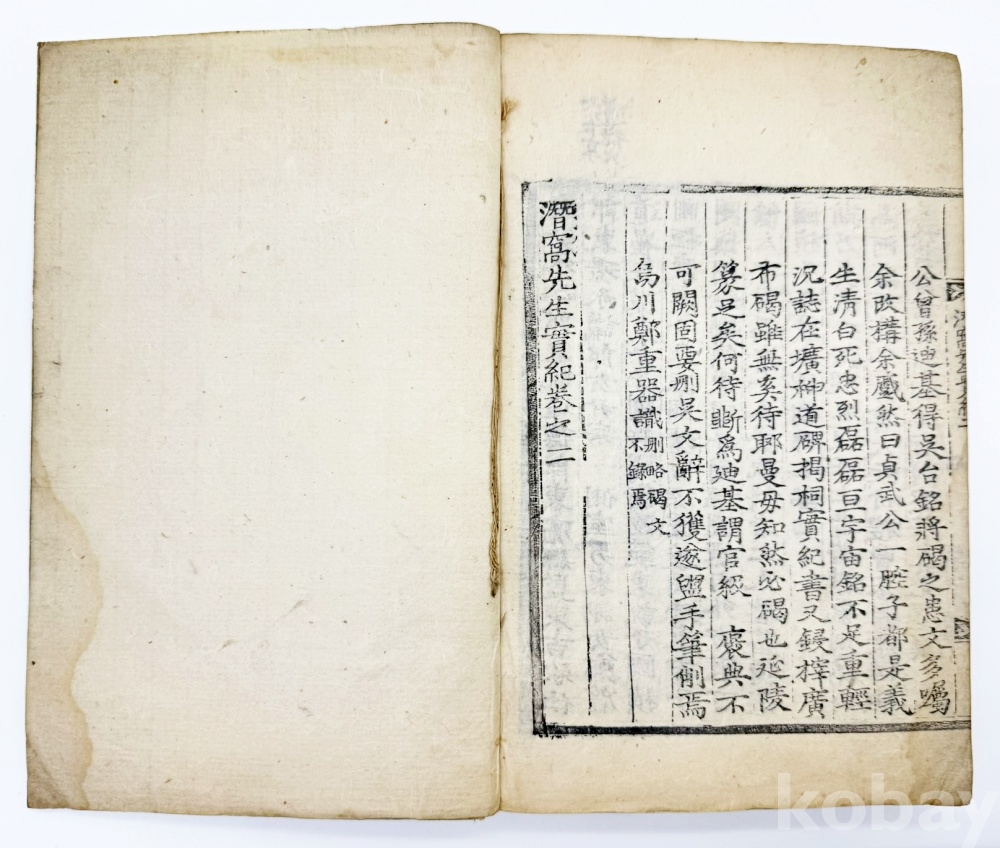 公曾孫迪基得吳台銘將碣之患文多囑
余改構余蹙然曰貞武公一腔子都是義
生清白死忠烈磊磊亘宇宙銘不足重輕
況誌在壙神道碑揭桐實紀書又鋟梓廣
布碣雖無奚待耶曼毋知然必碣也延陵
篆足矣何待斷爲迪基謂官級 褒典不
可闕固要刪吳文辭不獲遂盥手筆削焉
烏川鄭重器識 刪略碣文
不錄焉
潛窩先生實紀卷之二
kobay